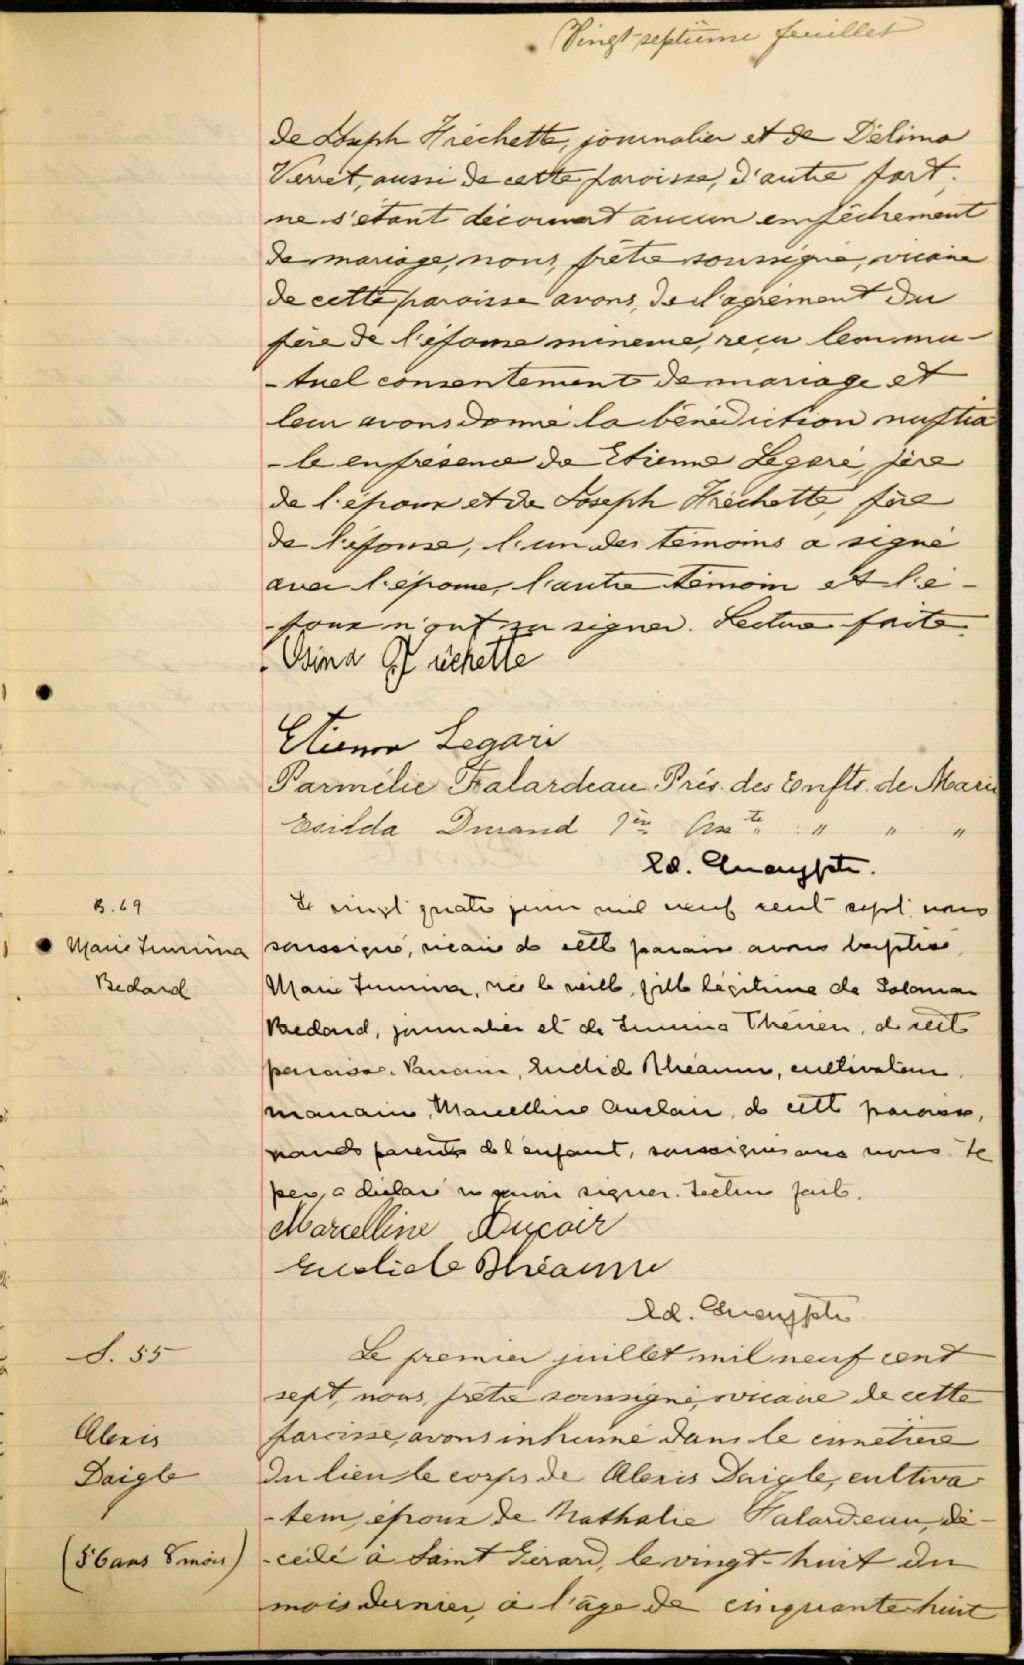 Vingt-septième feuillet
de Joseph Fréchette, journalier et de Délima
Verret, aussi de cette paroisse, d'autre part;
ne s'étant découvert aucun empêchement
de mariage, nous, prêtre soussigné, vicaire
de cette paroisse avons, de l'agrément du
père de l'épouse mineure, reçu leur mu-
-tuel consentement de mariage et
leur avons donné la bénédiction nuptia
-le en présence de Etienne Légaré, père
de l'époux et de Joseph Fréchette, père
de l'épouse, l'un des témoins a signé
avec l'épouse, l'autre témoin et l'é-
-poux n'ont su signer. Lecture faite.
Osina Fréchette
Etienne Legaré
Parmélie Falardeau Prés. des Enfts. de Marie
Exilda Durand 1ère Asste " " "
Ed.
B. 69
Marie Zumina
Bedard
Le vingt quatre juin mil neuf cent sept, nous
soussigné, vicaire de cette paroisse avons baptisé
Marie Zumina, née la veille, fille légitime de Salomon
Bedard, journalier et de Zumina Thérien, de cette
paroisse. Parrain, Euclide Rhéaume, cultivateur
marraine, Marcelline Auclair, de cette paroisse,
grands parents de l'enfant, soussignés avec nous. Le
père a déclaré ne savoir signer. Lecture faite.
Marcelline Aucair
Euclide Rhéaume
Ed.
S. 55
Alexis
Daigle
(56 ans 8 mois)
Le premier juillet mil neuf cent
sept, nous, prêtre soussigné, vicaire de cette
paroisse, avons inhumé dans le cimetière
du lieu le corps de Alexis Daigle, cultiva-
-teur, époux de Nathalie Falardeau, dé-
-cédé à Saint Gérard, le vingt-huit du
mois dernier, à l'âge de cinquante huit